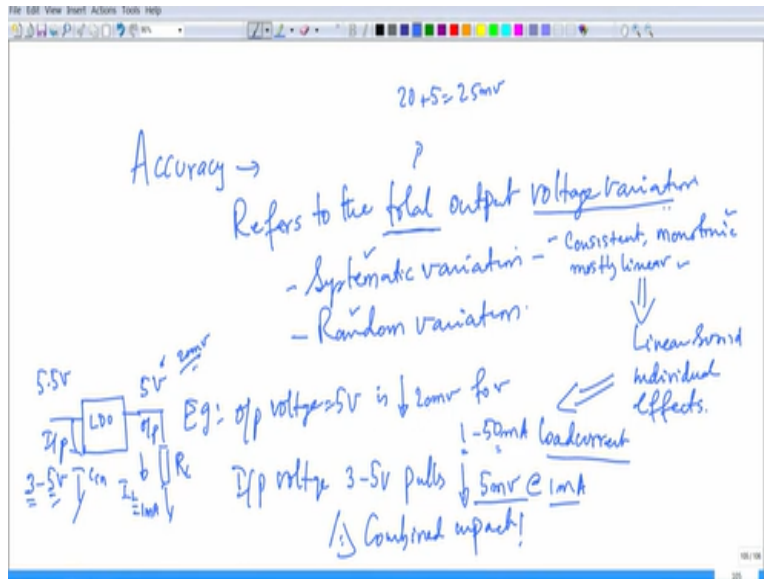 File Edit View Insert Actions Tools Help
20+5=25mv
Accuracy →
Refers to the total output voltage variation
- Systematic variation - Consistent, monotonic
mostly linear
- Random variation.
Linear
individual
effects.
5.5V
5V
20mv
LDO
I/p
o/p
3-5V
Cin
IL
=1mA
RL
Eg: o/p voltge=5V is ↓ 20mv for
1-50mA loadcurrent
I/p voltge 3-5v pulls ↓ 5mv @ 1mA
Combined impact!